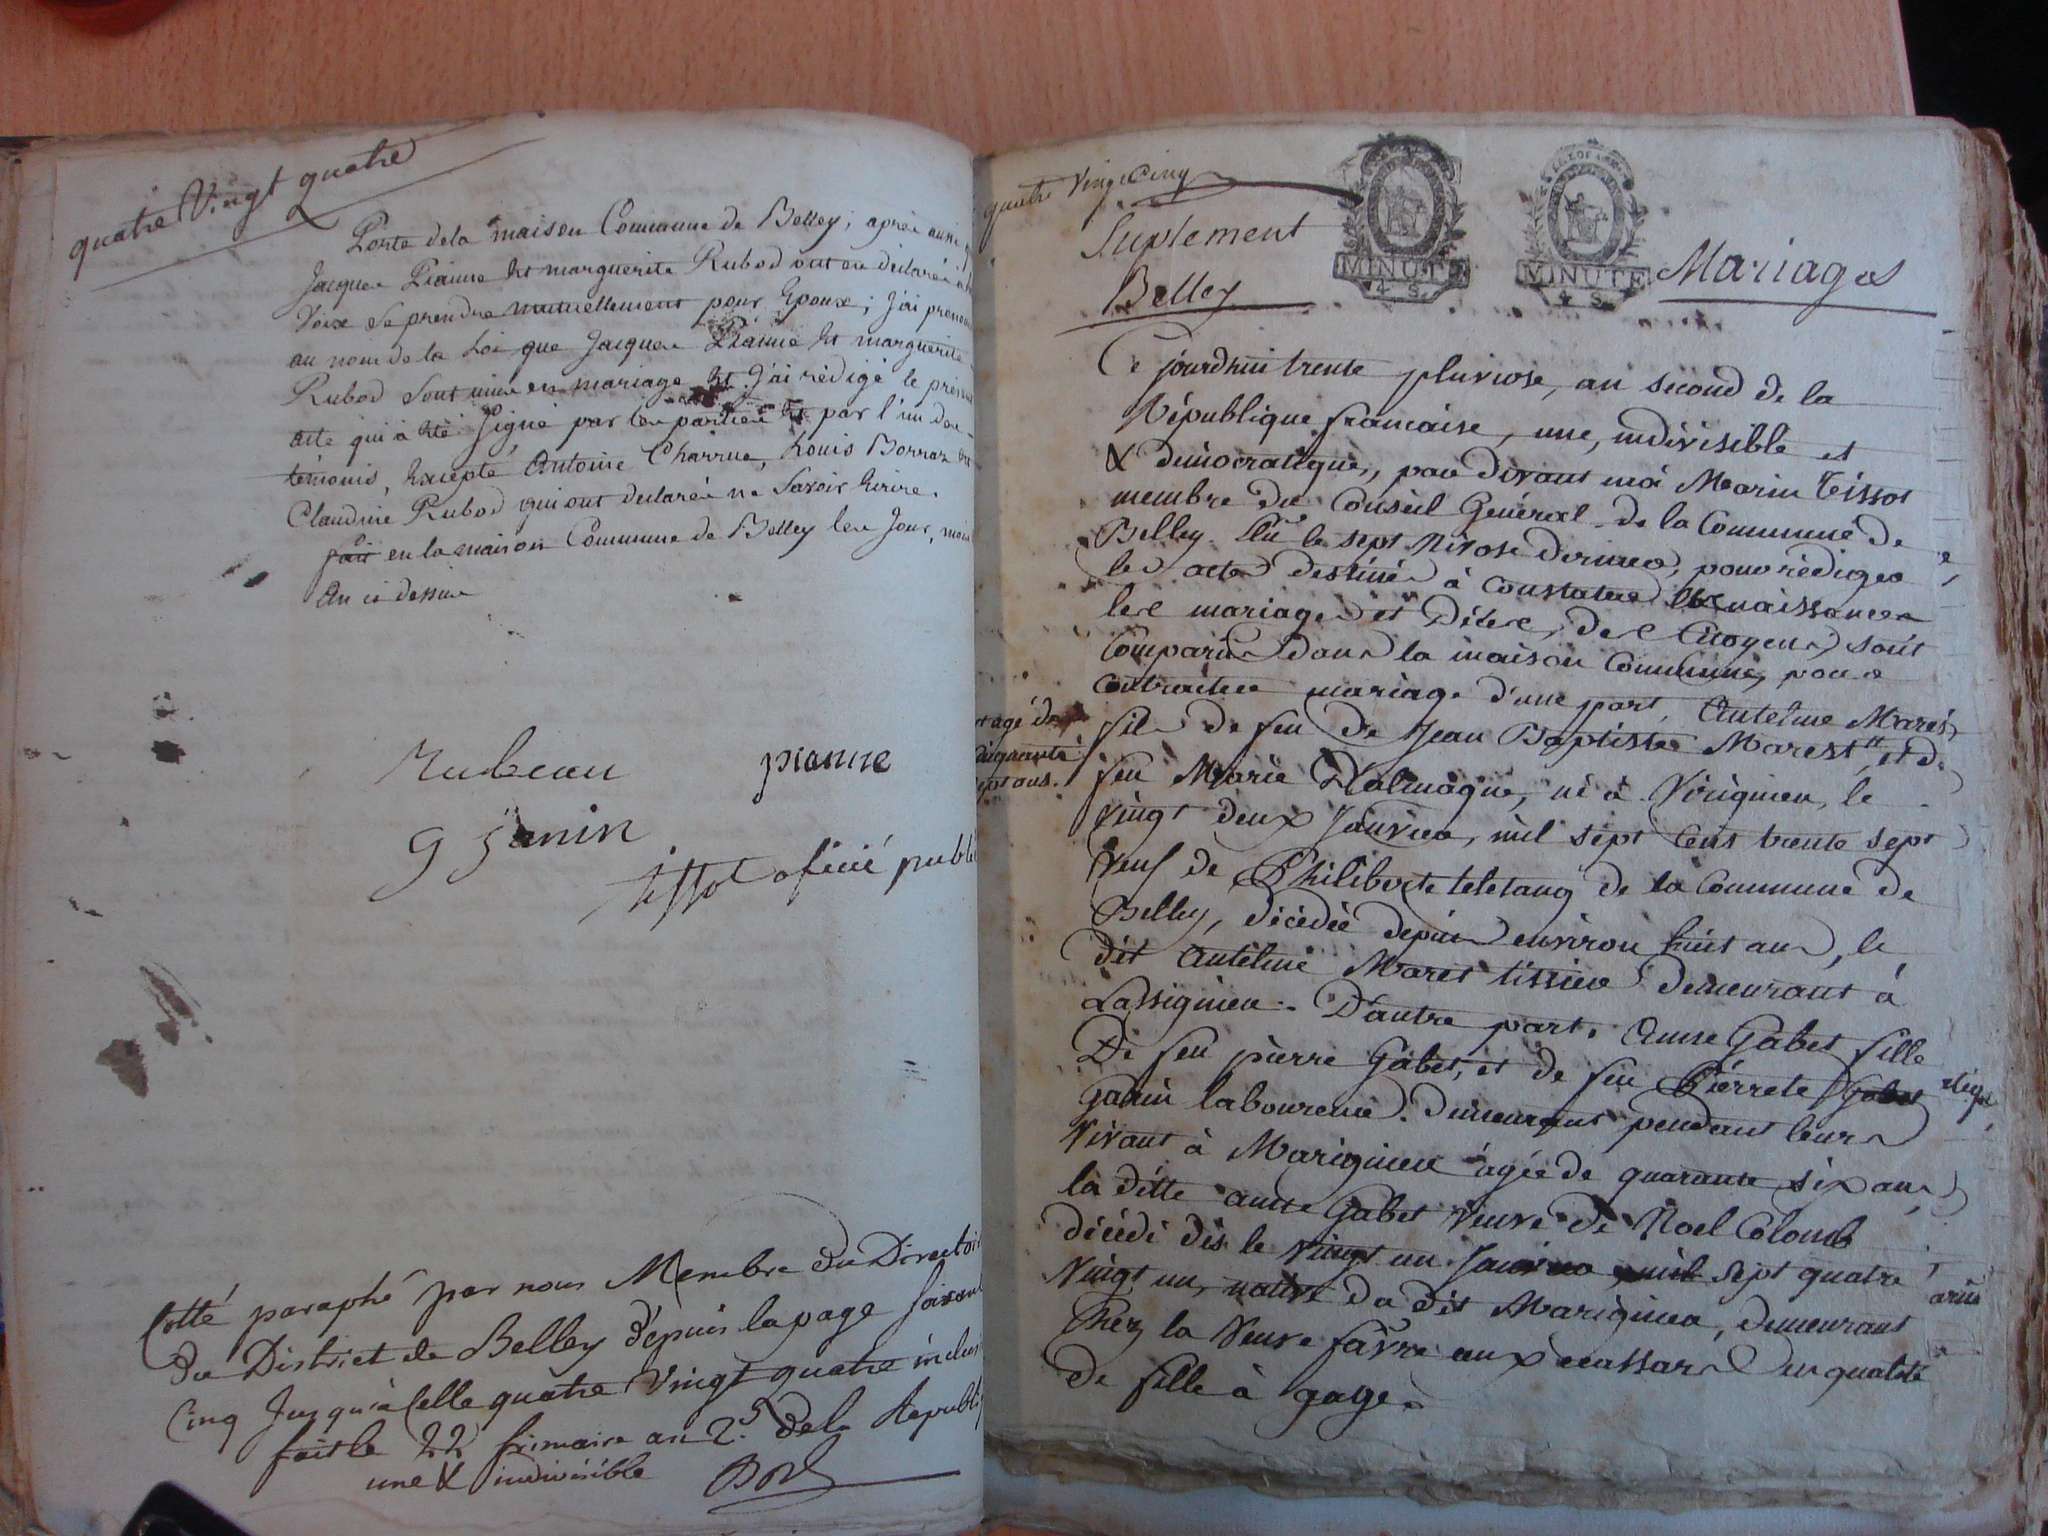 quatre Vingt quatre
Porte dela maison Commune de Belley; après aussi
Jacques Pianne Et marguerite Rubod ont eu déclaré a h
Voix se prendre mutuellement pour Epoux; j'ai prenon
au nom de la Loi que Jacques Pianne Et marguerite
Rubod sont unis en mariage Et j'ai rédigé le présent
acte qui à été signé par les parties Et par l'un des
témoins, Excepté Antoine Charrue, Louis Borraz
Claudine Rubod qui ont declarés ne savoir Ecrire.
fait en la maison Commune de Belley les Jour, mois
An ci dessus
Rubeau pianne
g Janin
tissot oficié publi
Cotté paraphé par nous Membre du Directoi
du District de Belley depuis la page soixant
Cinq Jusqu'à Celle quatre Vingt quatre inclus
fait le 22 frimaire an 2.e de la Republi
une & indivisible
quatre Vingt Cinq
Suplement
Belley
MINUTE
4 S.
MINUTE
4 S.
Mariages
Ce jourdhui trente pluviose, an second de la
République francaise, une, indivisible et
& démocratique, par devant moi Marin Tissot
membre du Conseil Général de la Commune de
Belley Elu le sept Nivose dernier, pour rédiger
les actes destinés à Constater les naissances
les mariages et Décès, des Citoyens sont
Comparus dans la maison Commune, pour
contracter mariage d'une part, Antelme Marest
et agé de
cinquante
sept ans.
fils de feu de Jean Baptiste Marest et de
feu Marie Dalmagne, né à Virignieu, le
Vingt deux Janvier, mil sept Cens trente sept
Veuf de Philiberte teletang de la Commune de
Belley, décédée depuis environ huit ans, le
dit Antelme Marest tissier demeurant à
Lassignieu. D'autre part, Anne Gabet fille
De feu pierre Gabet, et de feu Pierrete Gabet
Garin laboureurs. demeurant pendant leurs
Vivant à Marignieu agée de quarante six ans
la ditte anne Gabet Veuve de Noel Colomb
décédé dès le Vingt un Janvier mil sept quatre
Vingt un, native du dit Marignieu, demeurant
Chez la Veuve favre aux écassars en qualité
de fille à gages